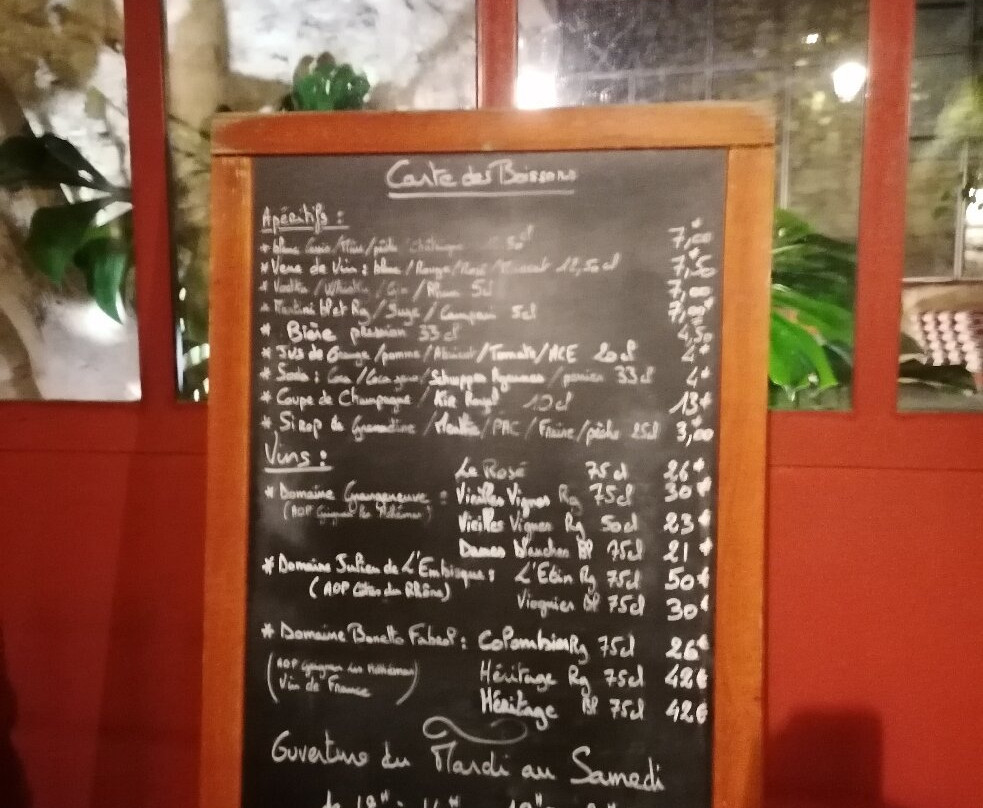 Carte des Boissons
Apéritifs :
* blanc Cassis/Mûre/pêche 7,00
* Verre de Vin : blanc/Rouge/Rosé/Muscat 12,50cl 7,50
* Vodka/Whisky/Gin/Rhum 5cl 7,00
* Martini Bl et Rg/Suze/Campari 5cl 7,00€
* Bière pression 33cl 4,50
* Jus de Orange/pomme/Abricot/Tomate/ACE 20cl 4€
* Soda : Coca/Coca zero/Schweppes Agrumes/perrier 33cl 4€
* Coupe de Champagne / Kir Royal 10cl 13€
* Sirop de Grenadine/Menthe/PAC/Fraise/pêche 25cl 3,00
Vins :
Le Rosé 75cl 26€
* Domaine Grangeneuve : Vieilles Vignes Rg 75cl 30€
(AOP Grignan les Adhémar)
Vieilles Vignes Rg 50cl 23€
Dames blanches Bl 75cl 21€
* Domaine Julien de L'Embisque : L'Etin Rg 75cl 50€
(AOP Côtes du Rhône)
Viognier Bl 75cl 30€
* Domaine Bonetto Fabrol : Colombier Rg 75cl 26€
(AOP Grignan les Adhémar) Héritage Rg 75cl 42€
Vin de France
Héritage Bl 75cl 42€
Ouverture du Mardi au Samedi